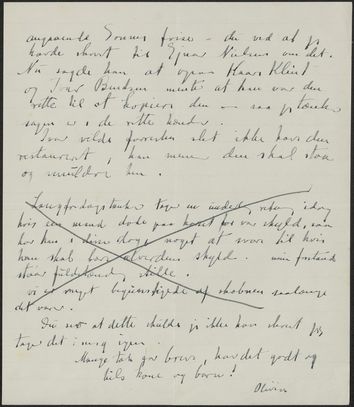 angaaende Sonnes frise - du ved at jeg
havde skrevet til Ejnar Nielsen om det.
Nu sagde han at ogsaa Kaare Klint
og Ivar Bentsen mente at han var den
rette til at kopiere den - saa jeg tænker
sagen er i de rette hænder.
Ivar vilde forresten slet ikke have den
restaureret, han mener den skal staa
og smuldre hen.
Langfredagstanker tager
hvis een mand døde paa korset for vor skyld, saa
har hun i disse dage noget at svare til hvis
han skal bære alverdens skyld. min forstand
staar fuldkommen stille.
vi er meget begunstigede af skæbnen saalænge
det varer.
Du ser at dette skulde jeg ikke have skrevet jeg
tager det i mig igen.
Mange tak for brevet, hav det godt og
hils kone og børn!
Olivia